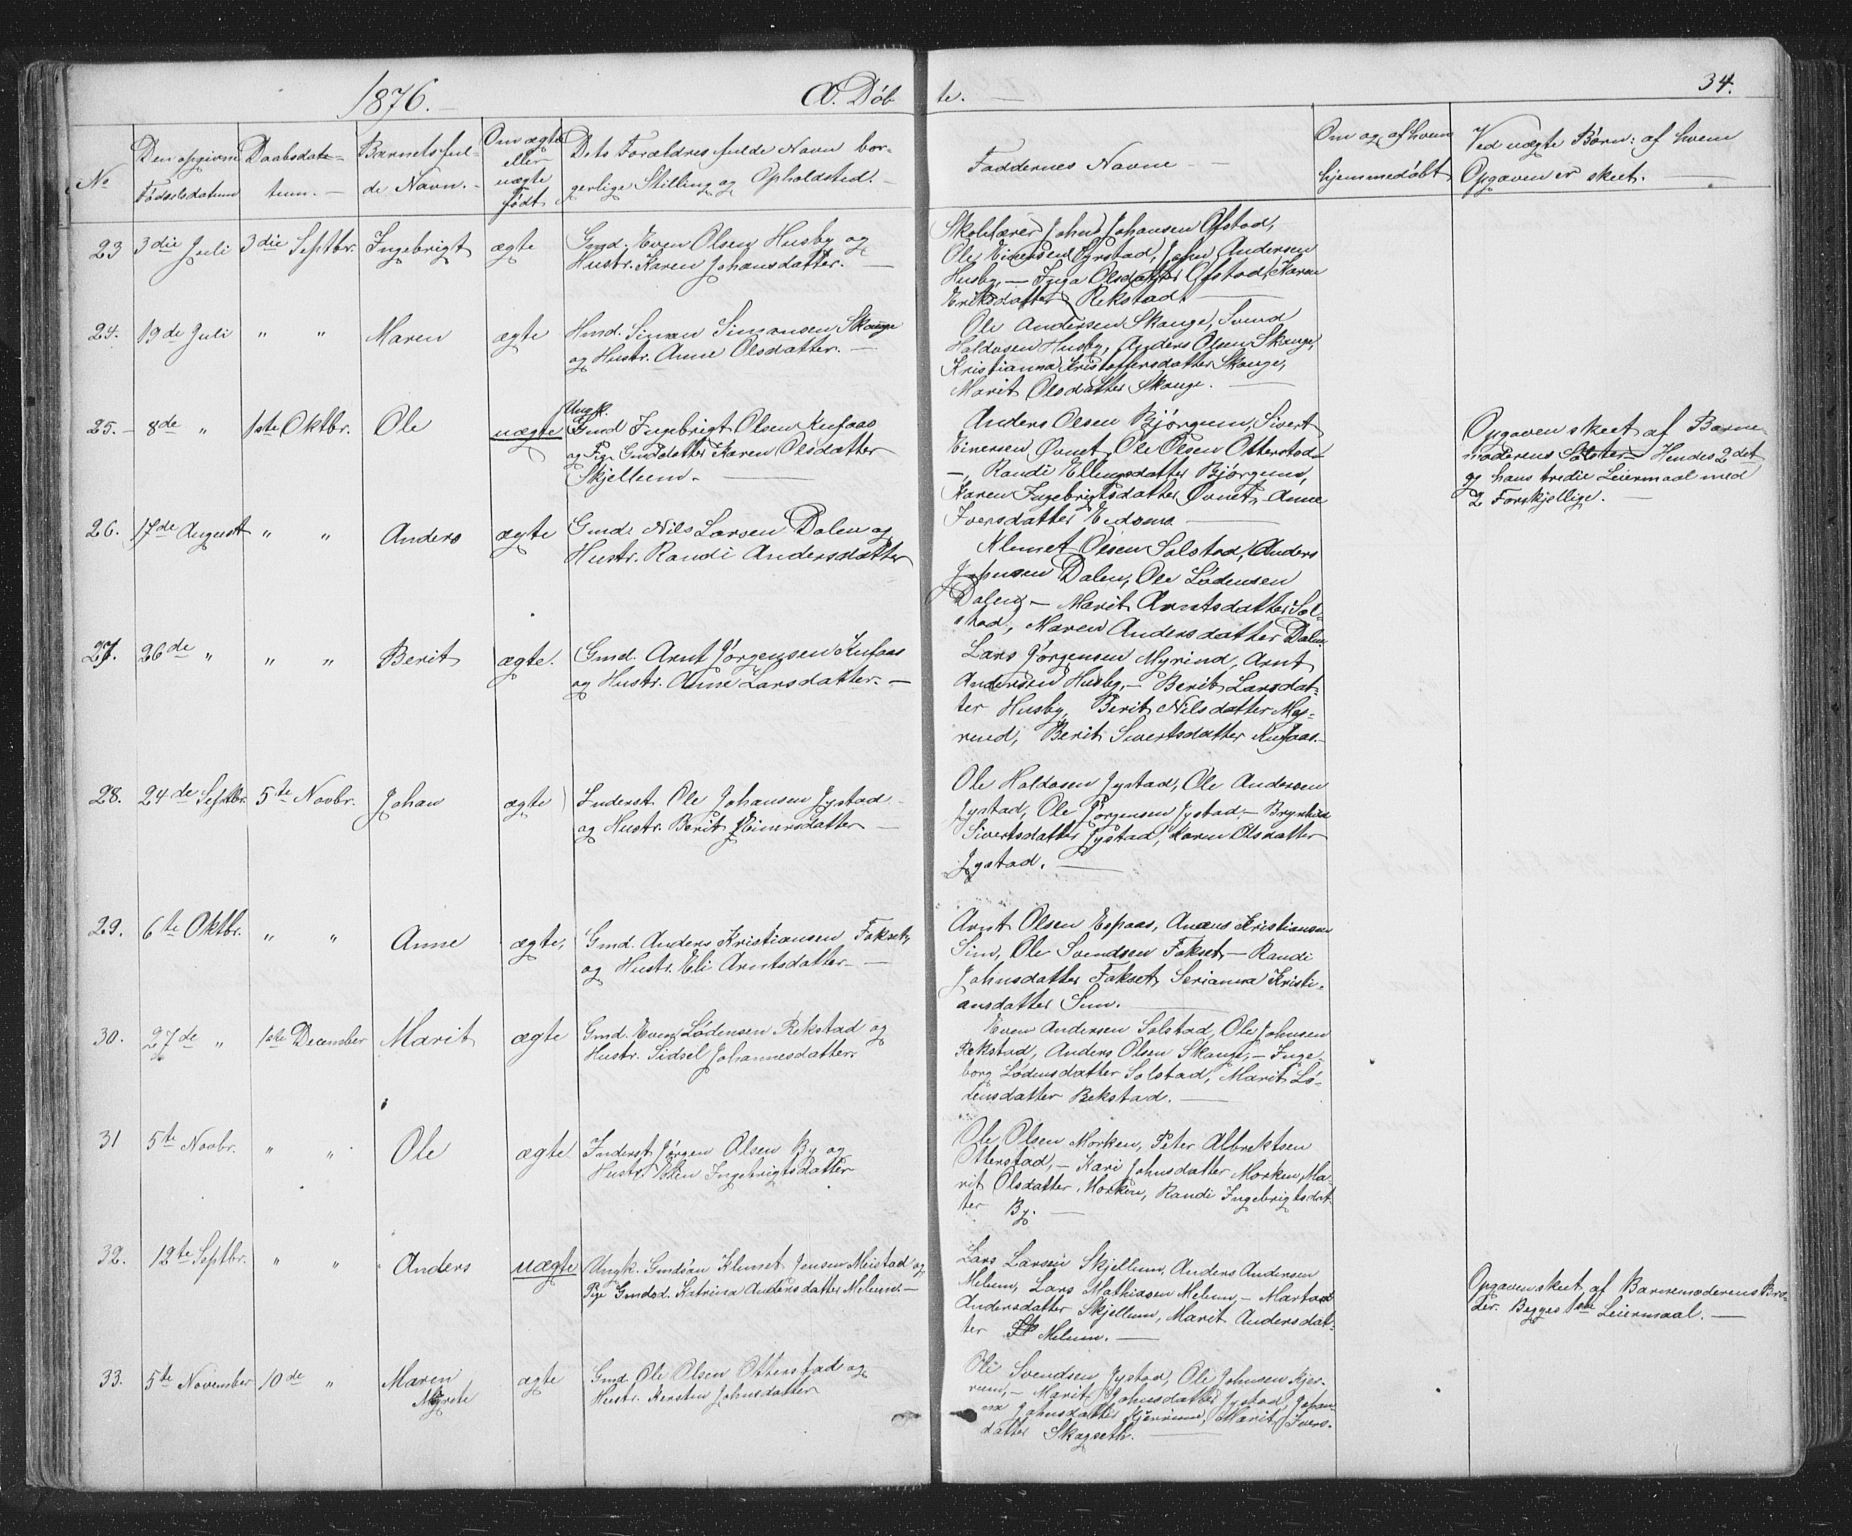 1876. — Œ. Døb te. — 34.
No
Den opgivne Fødselsdatum
Daabsdatum. —
Barnets fulde Navn. —
Om ægte eller uægte født
Dets Forældres fulde Navn borgerlige Stilling og Opholdsted. —
Faddernes Navne —
Om og af hvem hjemmedøbt
Ved uægte Børn: af hvem Opgaven er skeet. —
23 3die Juli 3die Septbr. Ingebrigt ægte
Gmd. Even Olsen Husby og
Hustr. Karen Johansdatter. —
Skolelærer Johns Johansen Ofstad,
Ole Einersen Syrstad, John Andersen
Husby, — Inga Olsdatter Ofstad, Karen
Eriksdatter Rekstad.
24. 19de Juli " " Maren ægte
Hmd. Simon Simonsen Skauge
og Hustr. Anne Olsdatter. —
Ole Andersen Skauge, Svend
Haldosen Husby, Anders Olsen Skauge,
Kristianna Kristoffersdatter Skauge,
Marit Olsdatter Skauge. —
25. — 8de " 1ste Oktbr. Ole uægte
Ungk.
Gmd Ingebrigt Olsen Kufaas
og Pige Gmddatter Karen Olsdatter
Skjellum. —
Anders Olsen Bjørgum, Sivert
Einersen Øvnet, Ole Olsen Otterstad
—, Randi Ellingsdatter Bjørgum,
Karen Ingebrigtsdatter Øvnet, Anne
Iversdatter Eidsmo —
Opgaven skeet af Barne
moderens Søster — Hendes 2det
og hans tredie Leiermaal med
2 Forskjellige. —
26. 17de August " " Anders ægte
Gmd. Nils Larsen Dalen og
Hustr. Randi Andersdatter
Klemet Olsen Solstad, Anders
Johnsen Dalen, Ole Lødensen
Dalen, — Marit Arntsdatter Sol-
stad, Maren Andersdatter Dalen
27. 26de " " " Berit ægte.
Gmd. Arnt Jørgensen Kufaas
og Hustr. Anne Larsdatter. —
Lars Jørgensen Myrind, Arnt
Andersen Husby, — Berit Larsdat-
ter Husby, Berit Nilsdatter My-
rend, Berit Sivertsdatter Kufaas —
28. 24de Septbr. 5te Novbr. Johan ægte
Inderst Ole Johansen Jystad
og Hustr. Berit Einersdatter —
Ole Haldosen Jystad, Ole Andersen
Jystad, Ole Jørgensen Jystad, — Brynhild
Sivertsdatter Jystad, Karen Olsdatter
Jystad. —
29. 6te Oktbr. " " Anne ægte,
Gmd. Anders Kristiansen Fokset,
og Hustr. Eli Arntsdatter —
Arnt Olsen Espaas, Anders Kristiansen
Sim, Ole Svendsen Fokset — Randi
Johnsdatter Fokset, Serianna Kristi-
ansdatter Sim.
30. 27de " 1ste December Marit ægte
Gmd. Even Lødensen Rekstad og
Hustr. Sidsel Johannesdatter
Even Andersen Solstad, Ole Johnsen
Rekstad, Anders Olsen Skauge, — Inge-
borg Lødensdatter Solstad, Marit Lø-
densdatter Rekstad. —
31 5te Novbr. " " Ole ægte
Inderst Jørgen Olsen By og
Hustr. Elen Ingebrigtsdatter
Ole Olsen Morken, Peter Albrektsen
Otterstad, — Kari Johnsdatter Morken, Ma-
rit Olsdatter Morken, Randi Ingebrigtsdat
ter By. —
32. 12te Septbr. " " Anders uægte
Ungk. Gmdsøn Klemet Jensen Meistad og
Pige Gmdsd. Katrina Andersdatter Melum. —
Lars Larsen Skjellum, Anders Andersen
Melum, Lars Mathiasen Melum, — Marta
Andersdatter Skjellum, Marit Andersdat-
ter Melum. —
Opgaven skeet af Barnemoderens Bro-
der. Begges 1ste Leiermaal. —
33. 5te November 10de " Maren
Margrete ægte
Gmd Ole Olsen Otterstad og
Hustr. Kersten Johnsdatter
Ole Svendsen Jystad, Ole Johnsen Kjer-
rum, — Marit Johnsdatter Jystad, Johan-
na Johnsdatter Kjerrum, Marit Ivers-
datter Skagseth. —